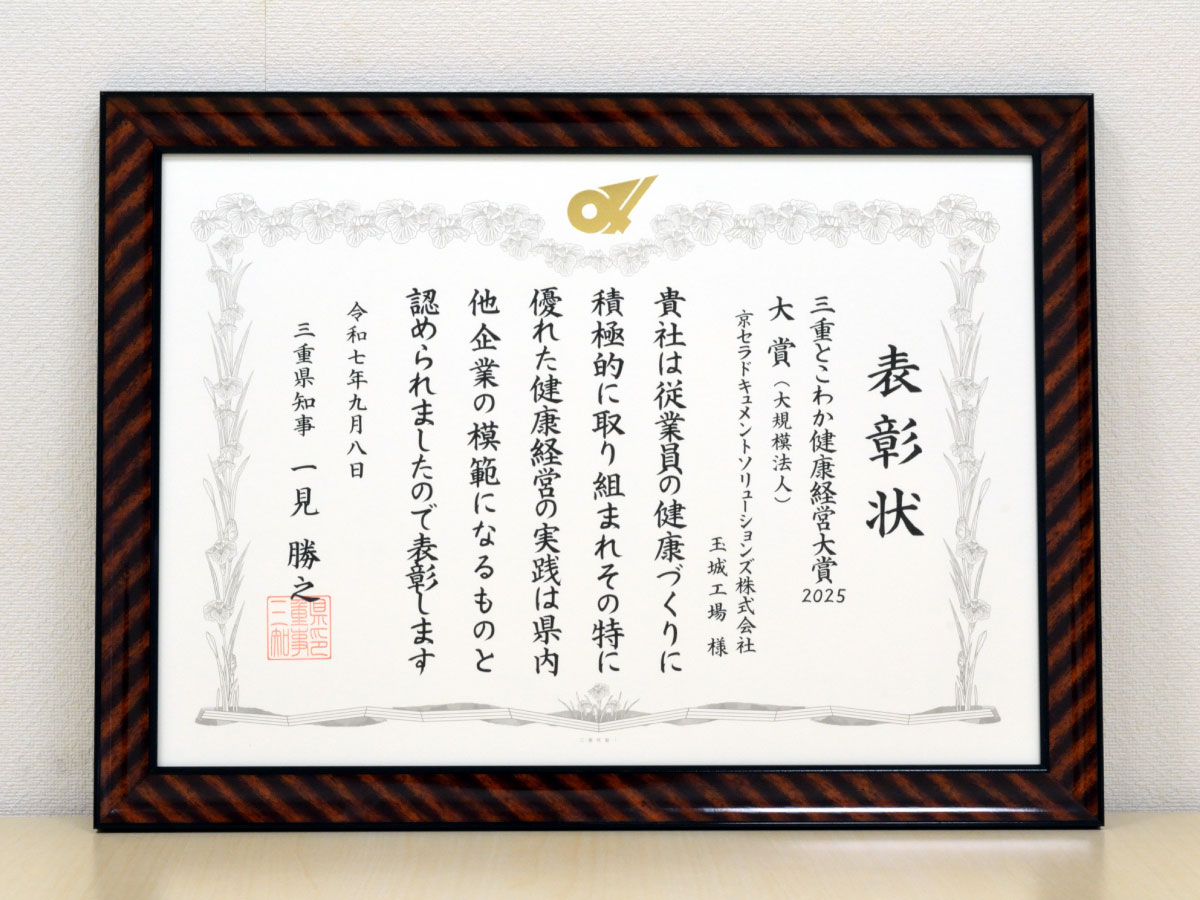 表彰状
三重とこわか健康経営大賞2025
大賞（大規模法人）
京セラドキュメントソリューションズ株式会社
玉城工場 様
貴社は従業員の健康づくりに
積極的に取り組まれその特に
優れた健康経営の実践は県内
他企業の模範になるものと
認められましたので表彰します
令和七年九月八日
三重県知事 一見 勝之